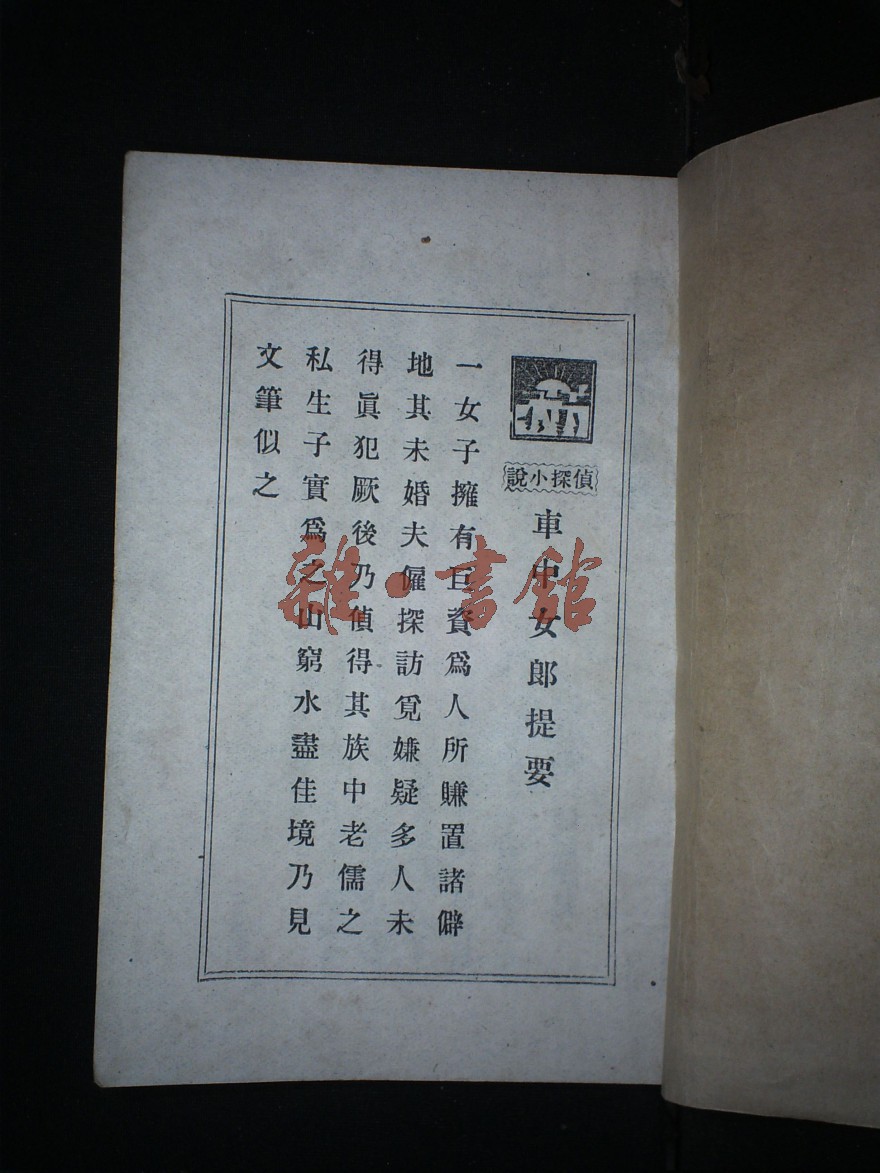 說小探偵
車中女郎提要
一女子擁有巨資爲人所賺置諸僻
地其未婚夫僱探訪覓嫌疑多人未
得眞犯厥後乃偵得其族中老儒之
私生子實爲之山窮水盡佳境乃見
文筆似之
雜·書館